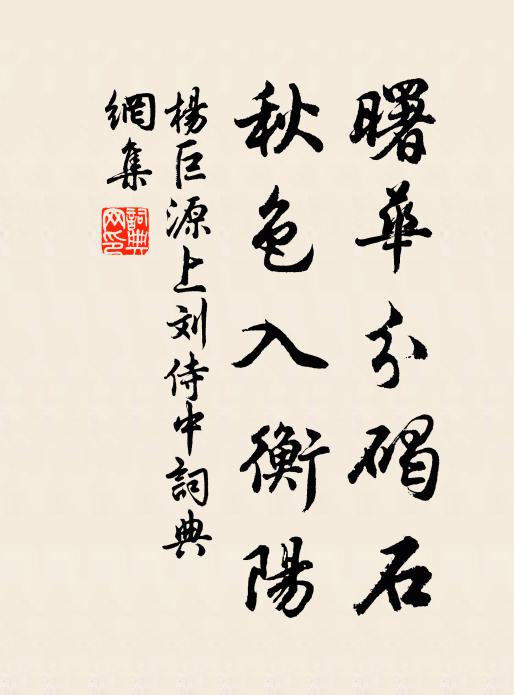 曙華分碣石
秋色入衡陽
楊巨源上刘侍中詞典
網集
詞典網印